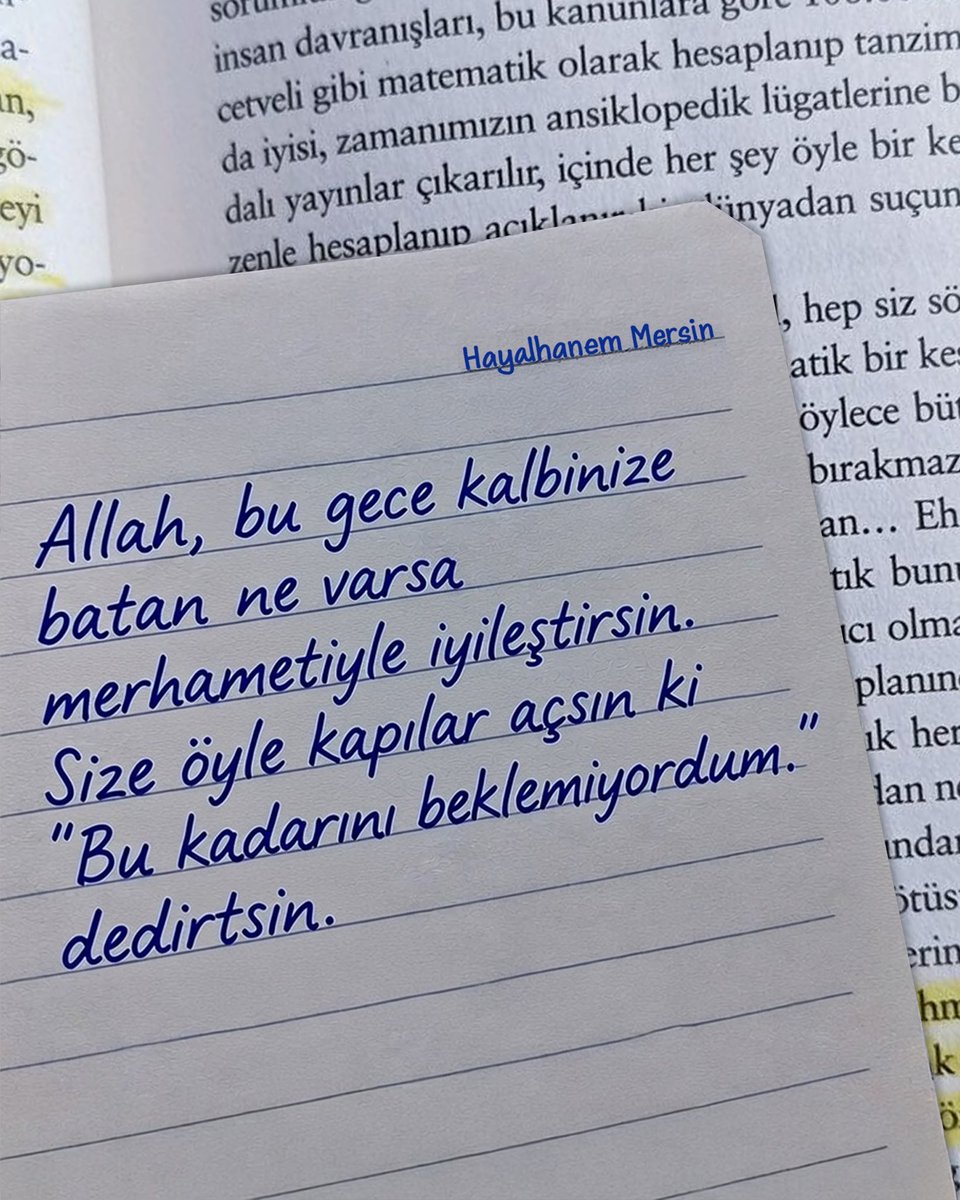 a-
gö-
eyi
yo-
insan davranışları, bu kanunlara
cetveli gibi matematik olarak hesaplanıp tanzim
da iyisi, zamanımızın ansiklopedik lügatlerine b
dalı yayınlar çıkarılır, içinde her şey öyle bir ke
zenle hesaplanıp dünyadan suçun
hep siz sö
atik bir kes
öylece büt
bırakmaz
an... Eh
tık bunu
ıcı olma
planın
ık her
dan ne
ından
ötüs
erin
hm
k
ö
Hayalhanem Mersin
Allah, bu gece kalbinize
batan ne varsa
merhametiyle iyileştirsin.
Size öyle kapılar açsın ki
"Bu kadarını beklemiyordum."
dedirtsin.